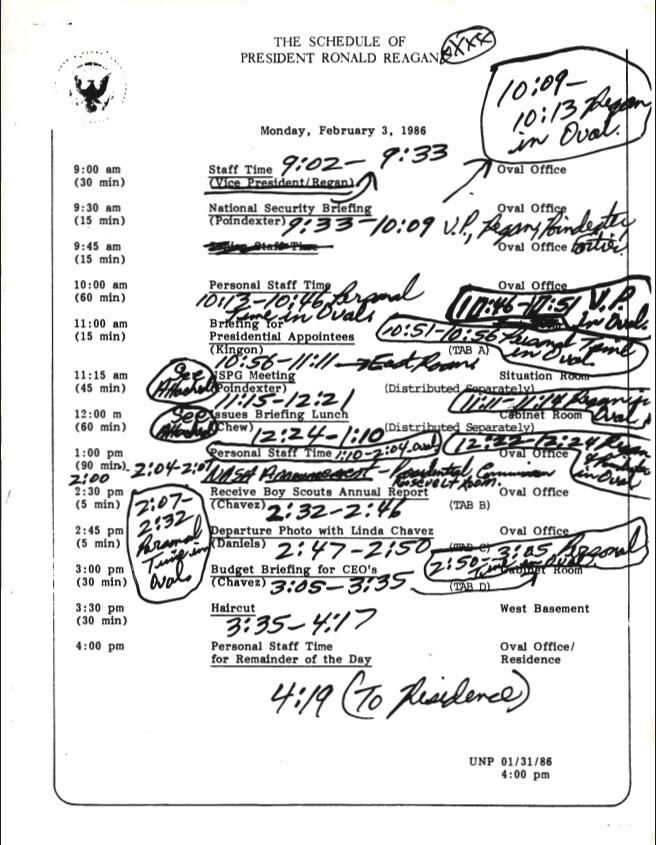 THE SCHEDULE OF
PRESIDENT RONALD REAGAN XXXX
10:09-
10:13 Regan
in Oval.
Monday, February 3, 1986
9:00 am Staff Time 9:02 - 9:33 Oval Office
(30 min) (Vice President/Regan)
9:30 am National Security Briefing Oval Office
(15 min) (Poindexter) 9:33-10:09 V.P., Regan, Poindexter
9:45 am Staff Time Oval Office
(15 min)
10:00 am Personal Staff Time Oval Office
(60 min) 10:13-10:46 Personal
Time in Ovals
10:46-10:51 V.P.
in Oval.
11:00 am Briefing for
(15 min) Presidential Appointees 10:51-10:56 Personal Time
in Oval
(Kingon) (TAB A)
10:56-11:11 → East Room
11:15 am NSPG Meeting Situation Room
(45 min) (Poindexter) (Distributed Separately)
See
Attached
11:15-12:21
11:11-11:14 Regan in
Oval
12:00 m Issues Briefing Lunch Cabinet Room
(60 min) (Chew) (Distributed Separately)
See
Attached
12:24-1:10
12:22-12:24 Regan
& Poindexter
in Oval
1:00 pm Personal Staff Time 1:10-2:04 Oval Oval Office
(90 min)
2:00 2:04-2:07 NASA Announcement - Presidential Commission
Roosevelt Room.
2:30 pm Receive Boy Scouts Annual Report Oval Office
(5 min) (Chavez) 2:32-2:46 (TAB B)
2:07-
2:32
Personal
Time in
Ovals
2:45 pm Departure Photo with Linda Chavez Oval Office
(5 min) (Daniels) 2:47-2:50 (TAB C)
2:50-3:05 Personal
Time in Oval
3:00 pm Budget Briefing for CEO's Cabinet Room
(30 min) (Chavez) 3:05-3:35 (TAB D)
3:30 pm Haircut West Basement
(30 min) 3:35-4:17
4:00 pm Personal Staff Time Oval Office/
for Remainder of the Day Residence
4:19 (To Residence)
UNP 01/31/86
4:00 pm